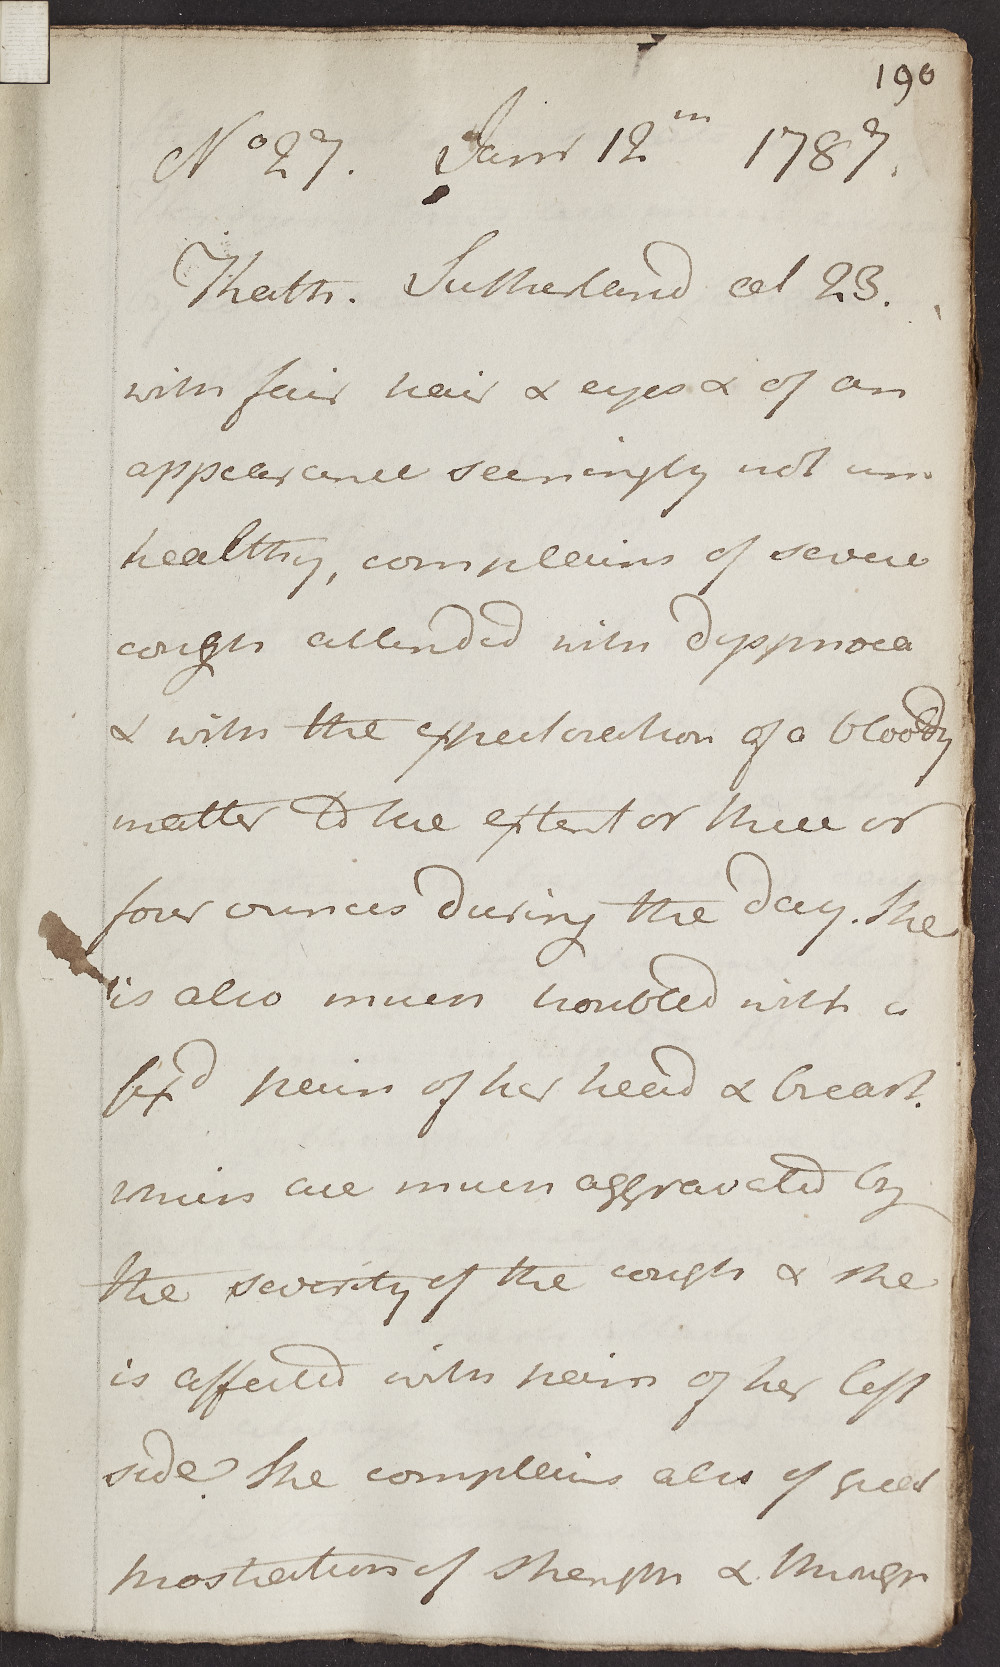 190
No 27. Janr 12th 1787.
Kath. Sutherland aet 23.
with fair hair & eyes & of an
appearance seemingly not un
healthy, complains of severe
cough attended with dyspnoea
& with the expectoration of a bloody
matter to the extent or three or
four ounces during the day. She
is also much troubled with a
fix'd pain of her head & breast.
which are much aggravated by
the severity of the cough & she
is affected with pain of her left
side. She complains also of great
prostration of strength & though